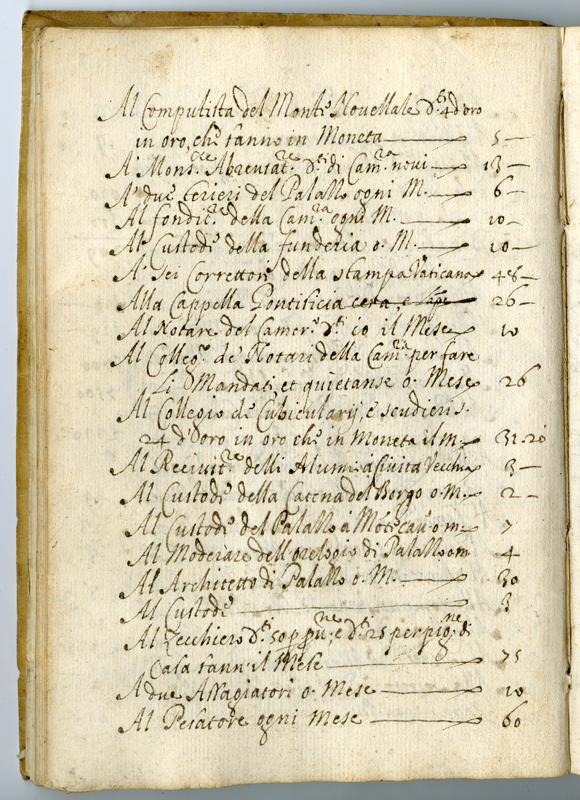 Al Computista del Monte Novennale d.ti 4 d'oro
in oro, che fanno in Moneta — 5 —
A' Mons.re Abreviat.re d.ti di Cam.ra novi — 13 —
A' due Cerieri del Palazzo ogni M. — 6 —
Al fondit.re della Cam.ra ogni M. — 10 —
Al Custode della funderia o. M. — 10 —
A' sei Correttori della stampa Vaticana 48 —
Alla Cappella Pontificia cera, e 26 —
Al Notare del Camer.o d.ti 10 il Mese 10
Al Colleg.o de Notari della Cam.ra per fare
Li Mandati, et quietanse o. Mese 26
Al Collegio de Cubicularij, e scudieri s.
24 d'oro in oro che in Moneta il m. 31.20
Al Ricevit.re delli Alumi a Civita Vecchia 3 —
Al Custode della Catena del Borgo o. M. 2 —
Al Custode del Palazzo a Mote cau.o o m. 7
Al Moderare dell'orelogio di Palazzo om 4
Al Architetto di Palazzo o. M. — 30
Al Custode — 3
Al Zecchiero d.ti 50 p e d.ti 25 per pig.ne di
Casa fann. il Mese — 75
A due Assagiatori o. Mese — 10
Al Pesatore ogni Mese — 60